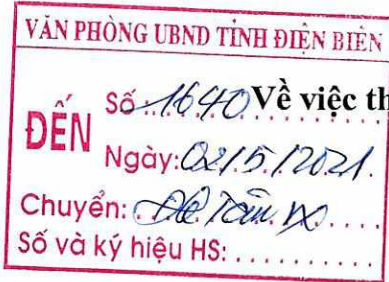 VĂN PHÒNG UBND TỈNH ĐIỆN BIÊN
ĐẾN
Số 1640 Về việc th
Ngày: 02/5/2021
Chuyển:
Số và ký hiệu HS: